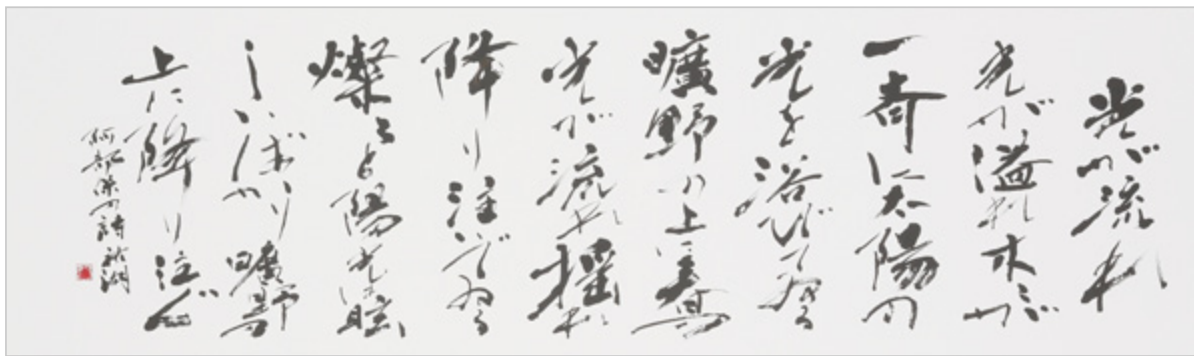 光が流れ
光が溢れ木々が
一斉に太陽の
光を浴びてゐる
曠野の上に
光が流れ揺れ
降り注いでゐる
燦々と陽光は眩
しいばかり曠野の
上に降り注ぐ
阿部 の詩